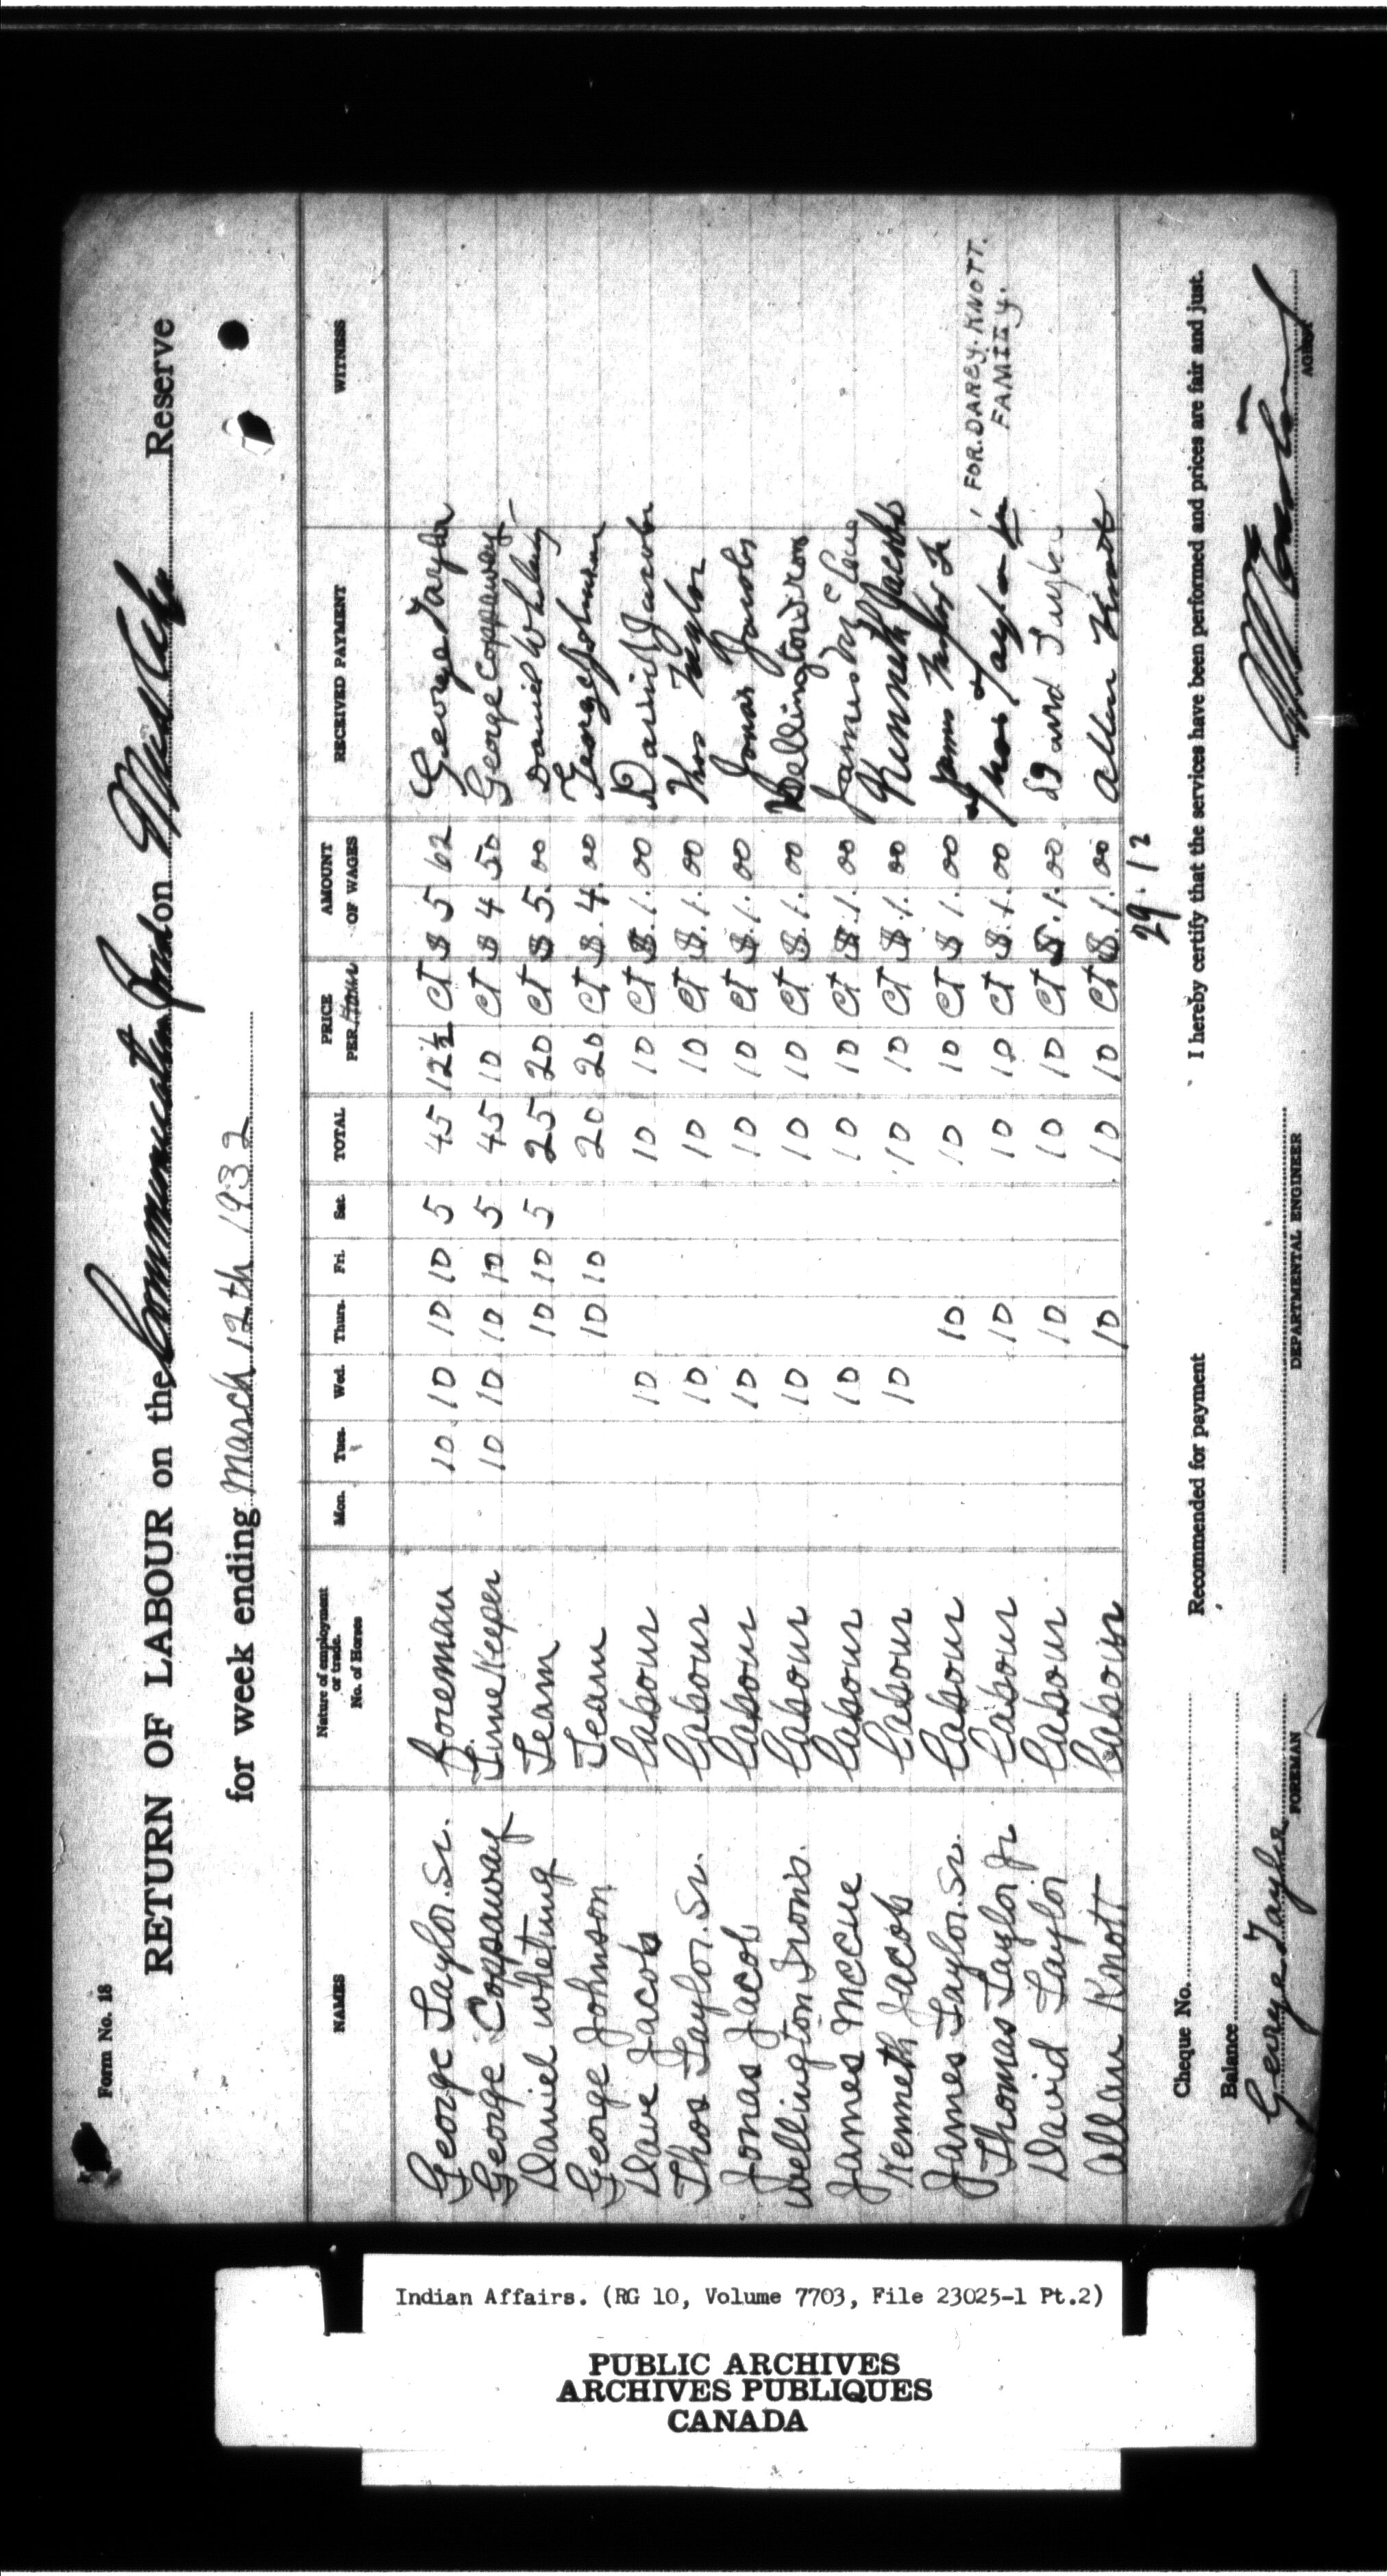 Form No. 18
RETURN OF LABOUR on the Reserve
for week ending March 12th 1932
NAMES Nature of employment or trade. No. of Horses Mon. Tues. Wed. Thurs. Fri. Sat. TOTAL PRICE PER Hour AMOUNT OF WAGES RECEIVED PAYMENT WITNESS
George Taylor. Sr. Foreman 10 10 10 10 5 45 12½ CT $ 5 62 George Taylor
George Coppaway Timekeeper 10 10 10 10 5 45 10 CT $ 4 50 George Coppaway
Daniel Whetung Team 10 10 5 25 20 CT $ 5. 00 Daniel Whetung
George Johnson Team 10 10 20 20 CT $. 4. 00 George Johnson
Dave Jacob Labour 10 10 10 CT $. 1. 00 David Jacobs
Thos Taylor. Sr. Labour 10 10 10 CT $. 1. 00 Thos Taylor
Jonas Jacob Labour 10 10 10 CT $. 1. 00 Jonas Jacobs
Wellington Irons. Labour 10 10 10 CT $. 1. 00 Wellington Irons
James McCue Labour 10 10 10 CT $. 1. 00 James McCue
Kenneth Jacob Labour 10 10 10 CT $. 1. 00 Kenneth Jacobs
James Taylor. Sr. Labour 10 10 10 CT $ 1. 00 James Taylor
Thomas Taylor Jr Labour 10 10 10 CT $. 1. 00 Thos Taylor FOR. DARCY. KNOTT. FAMILY.
David Taylor Labour 10 10 10 CT $. 1. 00 Taylor
Allan Knott Labour 10 10 10 CT $. 1. 00 Allan Knott
29.12
Cheque No. Recommended for payment I hereby certify that the services have been performed and prices are fair and just.
Balance
George Taylor
FOREMAN DEPARTMENTAL ENGINEER AGENT
Indian Affairs. (RG 10, Volume 7703, File 23025-1 Pt.2)
PUBLIC ARCHIVES
ARCHIVES PUBLIQUES
CANADA